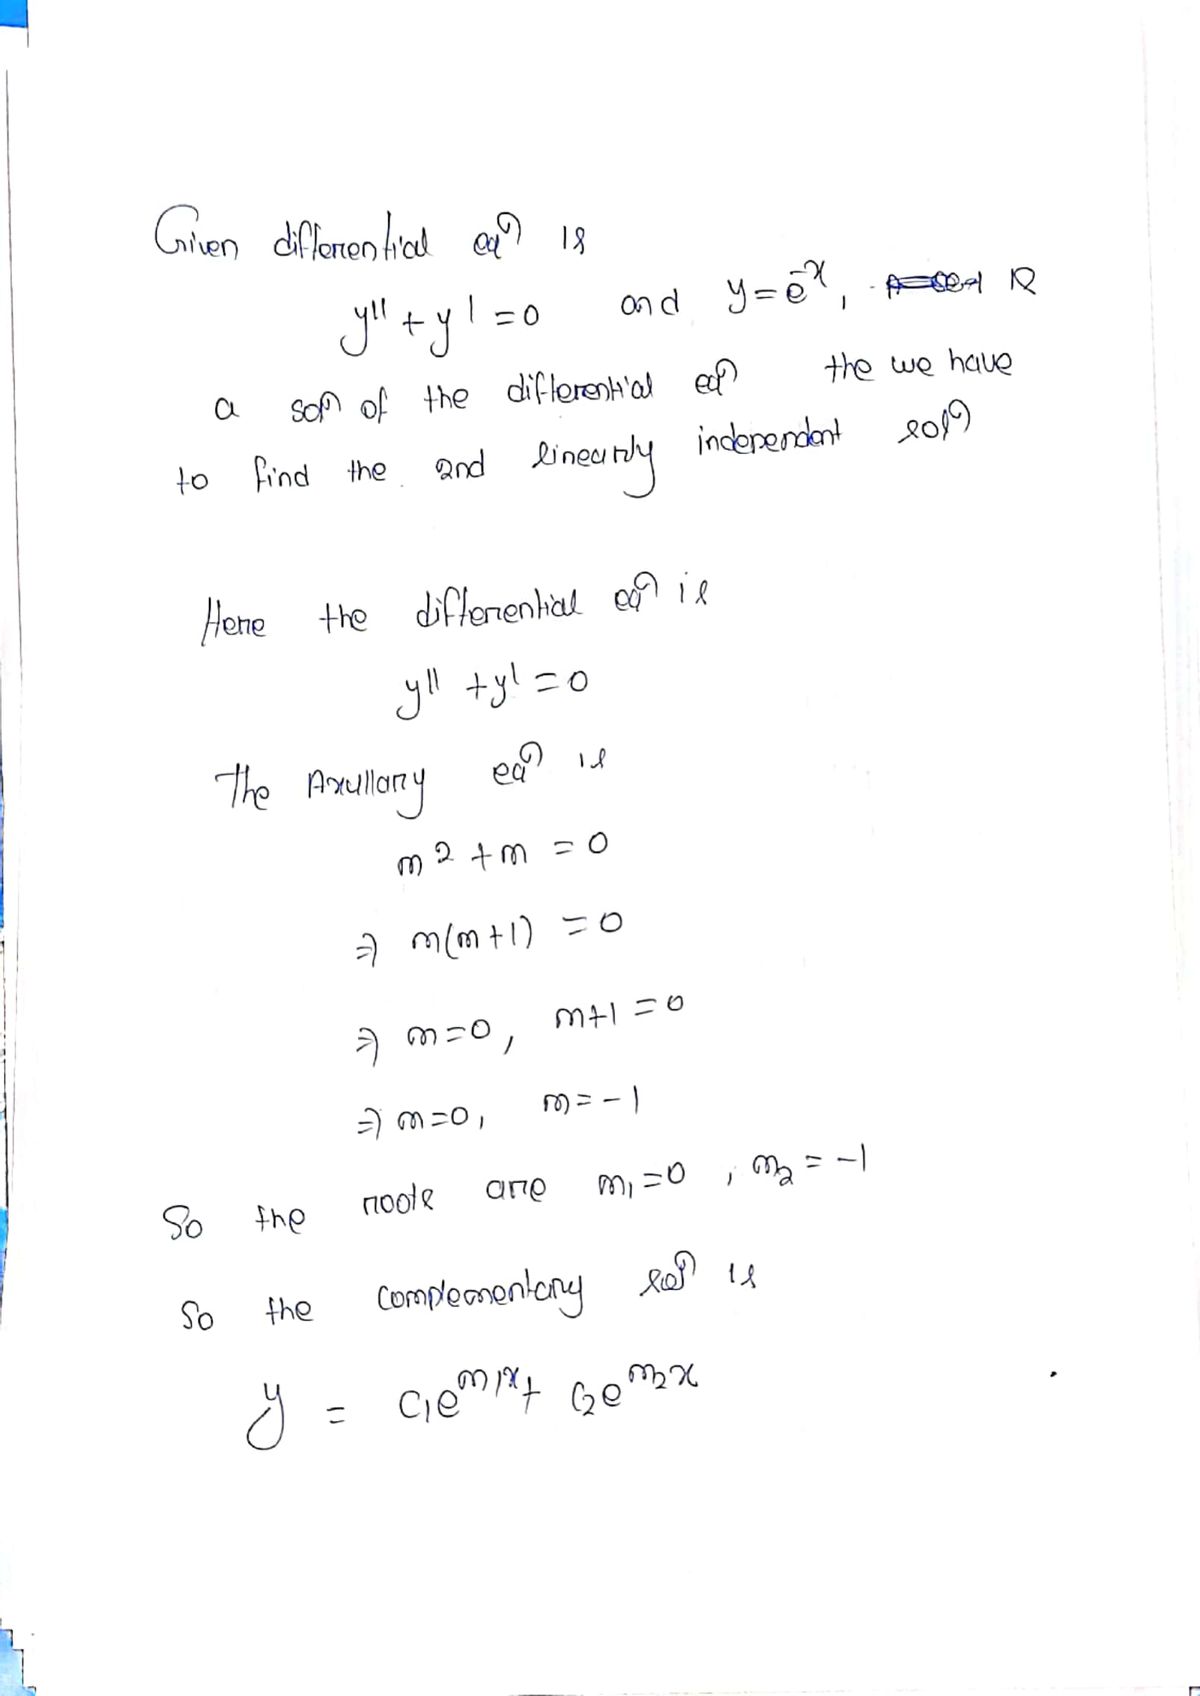 Given differential eqn is
y'' + y' = 0 and y = e^-x, is
a soln of the differential eqn the we have
to find the 2nd linearly independent soln
Here the differential eqn is
y'' + y' = 0
The Axullary eqn is
m² + m = 0
⇒ m(m+1) = 0
⇒ m=0, m+1 = 0
⇒ m=0, m = -1
So the roots are m₁=0, m₂ = -1
So the complementary soln is
y = c₁e^m₁x + c₂e^m₂x